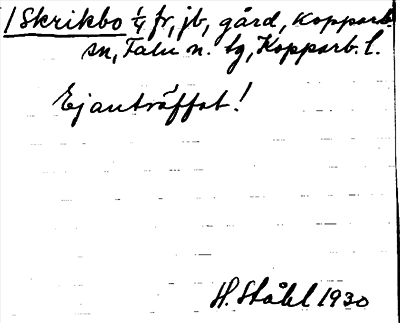 /Skrikbo 1/4 fr, jb, gård, Kopparb.
sn, Falu n. tg, Kopparb. l.
Ej anträffat!
H. Ståhl 1930